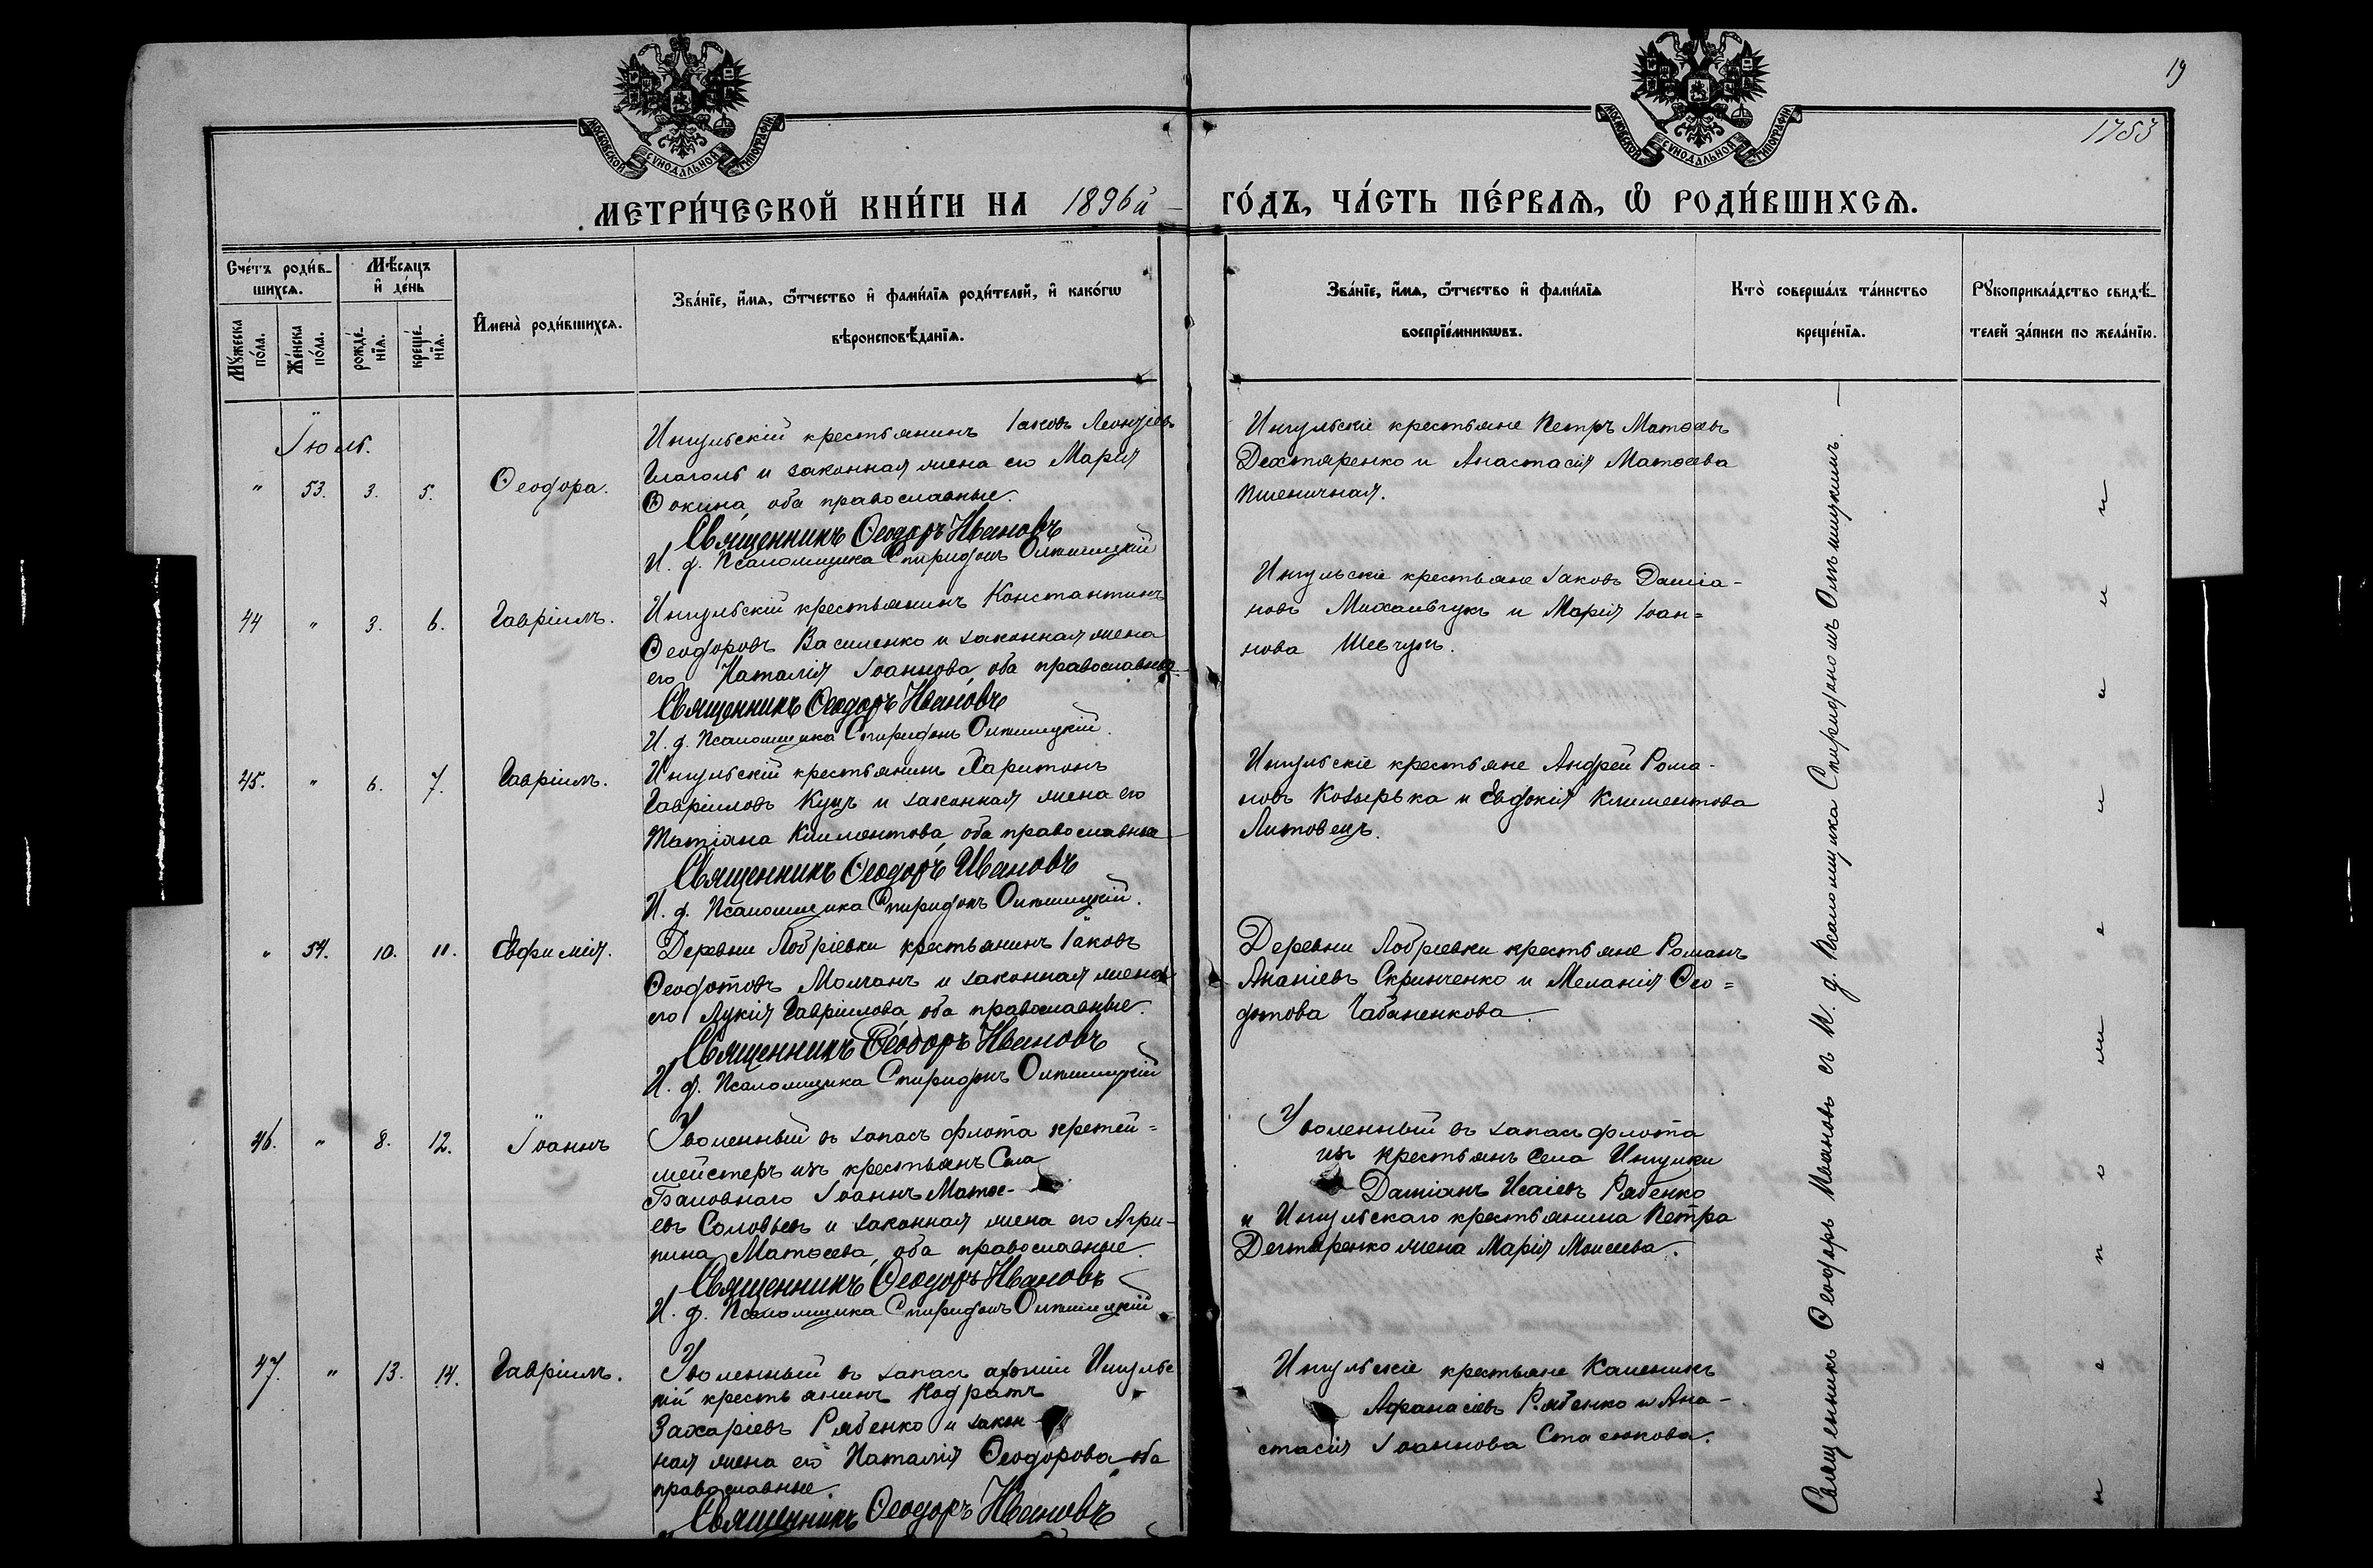 19
1753
МОСКОВСКОЙ СѴНОДАЛЬНОЙ ТИПОГРАФІИ
МОСКОВСКОЙ СѴНОДАЛЬНОЙ ТИПОГРАФІИ
МЕТРИ́ЧЕСКОЙ КНИ́ГИ НА 1896й
ГО́ДЪ, ЧА́СТЬ ПЕ́РВАѦ, Ѽ РОДИ́ВШИХСѦ.
Сче́тъ роди́в-
шихсѧ.
Мꙋ́жеска по́ла.
Же́нска по́ла.
Мѣ́сѧцъ
и҆ де́нь
рожде́-
нїѧ.
креще́-
нїѧ.
И҆мена̀ роди́вшихсѧ.
Зва́нїе, и҆́мѧ, ѻ҆́тчество и҆ фами́лїѧ роди́телей, и҆ како́гѡ
вѣроисповѣ́данїѧ.
Зва́нїе, и҆́мѧ, ѻ҆́тчество и҆ фами́лїѧ
воспрїе́мникѡвъ.
Кто̀ соверша́лъ та́инство
креще́нїѧ.
Рꙋкоприкла́дство свидѣ́-
телей за́писи по жела́нїю.
Іюль.
" 53. 3. 5. Ѳеодора.
Ингульскій крестьянинъ Іаковъ Леонтіевъ
Глаголь и законная жена его Марія
Ѳокина, оба православные.
Священникъ Ѳеодоръ Ивановъ
И. д. Псаломщика Спиридонъ Ольшицкій
Ингульскіе крестьяне Петръ Матѳеевъ
Дехтяренко и Анастасія Матѳеева
Пшеничная.
44 " 3. 6. Гавріилъ.
Ингульскій крестьянинъ Константинъ
Ѳеодоровъ Василенко и законная жена
его Наталія Іоаннова, оба православные
Священникъ Ѳеодоръ Ивановъ
И. д. Псаломщика Спиридонъ Ольшицкій.
Ингульскіе крестьяне Іаковъ Даміа-
новъ Михальчукъ и Марія Іоан=
нова Шевчукъ.
45. " 6. 7. Гавріилъ.
Ингульскій крестьянинъ Харитонъ
Гавріиловъ Куцъ и законная жена его
Татіана Климентова, оба православные
Священникъ Ѳеодоръ Ивановъ
И. д. Псаломщика Спиридонъ Ольшицкій.
Ингульскіе крестьяне Андрей Рома-
новъ Козырька и Евдокія Климентова
Литовецъ.
" 54. 10. 11. Евфимія.
Деревни Лобріевки крестьянинъ Іаковъ
Ѳеодотовъ Молчанъ и законная жена
его Лукія Гавріилова, оба православные.
Священникъ Ѳеодоръ Ивановъ
И. д. Псаломщика Спиридонъ Ольшицкій
Деревни Лобріевки крестьяне Романъ
Ананіевъ Скринченко и Меланія Ѳео=
дотова Чабаненкова.
46. " 8. 12. Іоаннъ
Уволенный въ запасъ флота
мейстеръ изъ крестьянъ Села
Баловнаго Іоаннъ Матѳе-
евъ Соловьевъ и законная жена его Агри-
пина Матѳеева, оба православные.
Священникъ Ѳеодоръ Ивановъ
И. д. Псаломщика Спиридонъ Ольшицкій
Уволенный въ запасъ флота
изъ крестьянъ села Ингулки
Даміанъ Исаіевъ Рябенко
и Ингульскаго крестьянина Петра
Дегтяренко жена Марія Моисеева.
47. " 13. 14. Гавріилъ.
Уволенный въ запасъ арміи Ингульс
кій крестьянинъ Кодратъ
Захаріевъ Рябенко и закон
ная жена его Наталія Ѳеодорова, оба
православные.
Священникъ Ѳеодоръ Ивановъ
Ингульскіе крестьяне Каленикъ
Аѳанасіевъ Рябенко и Ана-
стасія Іоаннова Стасюкова.
Священникъ Ѳеодоръ Ивановъ съ И. д. Псаломщика Спиридономъ Ольшицкимъ.